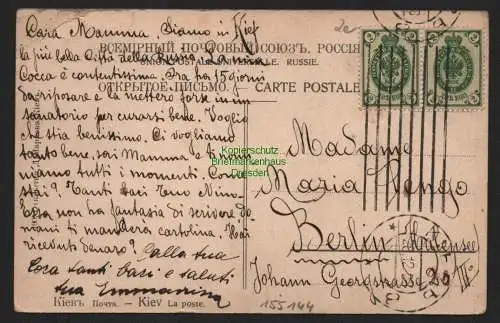 Cara Mamma. Siamo in Kief
la più bella città della Russia. La mia
Cocca è contentissima. Ora ha 15 giorni
da riposare e la metterò forse in un
sanatorio per curarsi bene. Voglio
che stia benissimo. Ci vogliamo
tanto bene, sai Mamma e ti nomi
niamo tutti i momenti. Come
stai? Tanti baci Tuo Nino
non ha fantasia di scrivere do
mani ti manderà cartolina. Hai
ricevuto denaro? Dalla tua
Cora tanti baci e saluti
tua
ВСЕМІРНЫЙ ПОЧТОВЫЙ СОЮЗЪ. РОССІЯ
UNION POSTALE UNIVERSELLE. RUSSIE.
ОТКРЫТОЕ ПИСЬМО. — CARTE POSTALE
Madame
Maria
Berlin
Johann Georgstrasse 20 III
Кіевъ Почта. — Kiev La poste.
155144
Kopierschutz
Briefmarkenhaus
Dresden